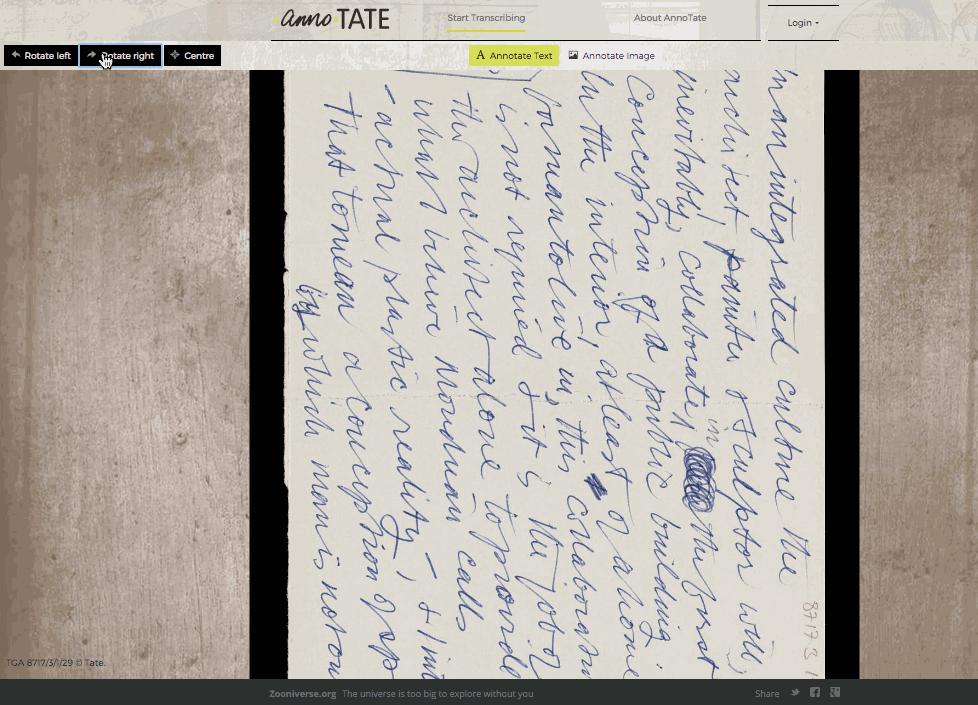 annoTATE
Start Transcribing
About AnnoTate
Login
Rotate left
Rotate right
Centre
Annotate Text
Annotate Image
8717 3 1
In an integrated culture the
architect, painter & sculptor will,
inevitably, collaborate, in the first
conception of a public building,
in the interior, at least of a home
for man to live in, this collabora
is not required & it is the job of
the architect alone to provide
what I believe Mondrian calls
- actual plastic reality, - & I
that to mean a conception of sp
by which man is not
TGA 8717/3/1/29 © Tate.
Zooniverse.org The universe is too big to explore without you
Share